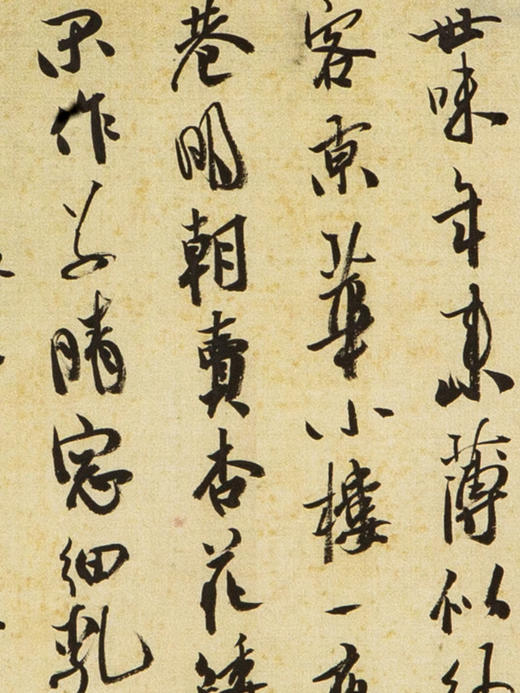 世味年來薄似
客京華小樓一夜
巷明朝賣杏花
閑作草晴窓細乳